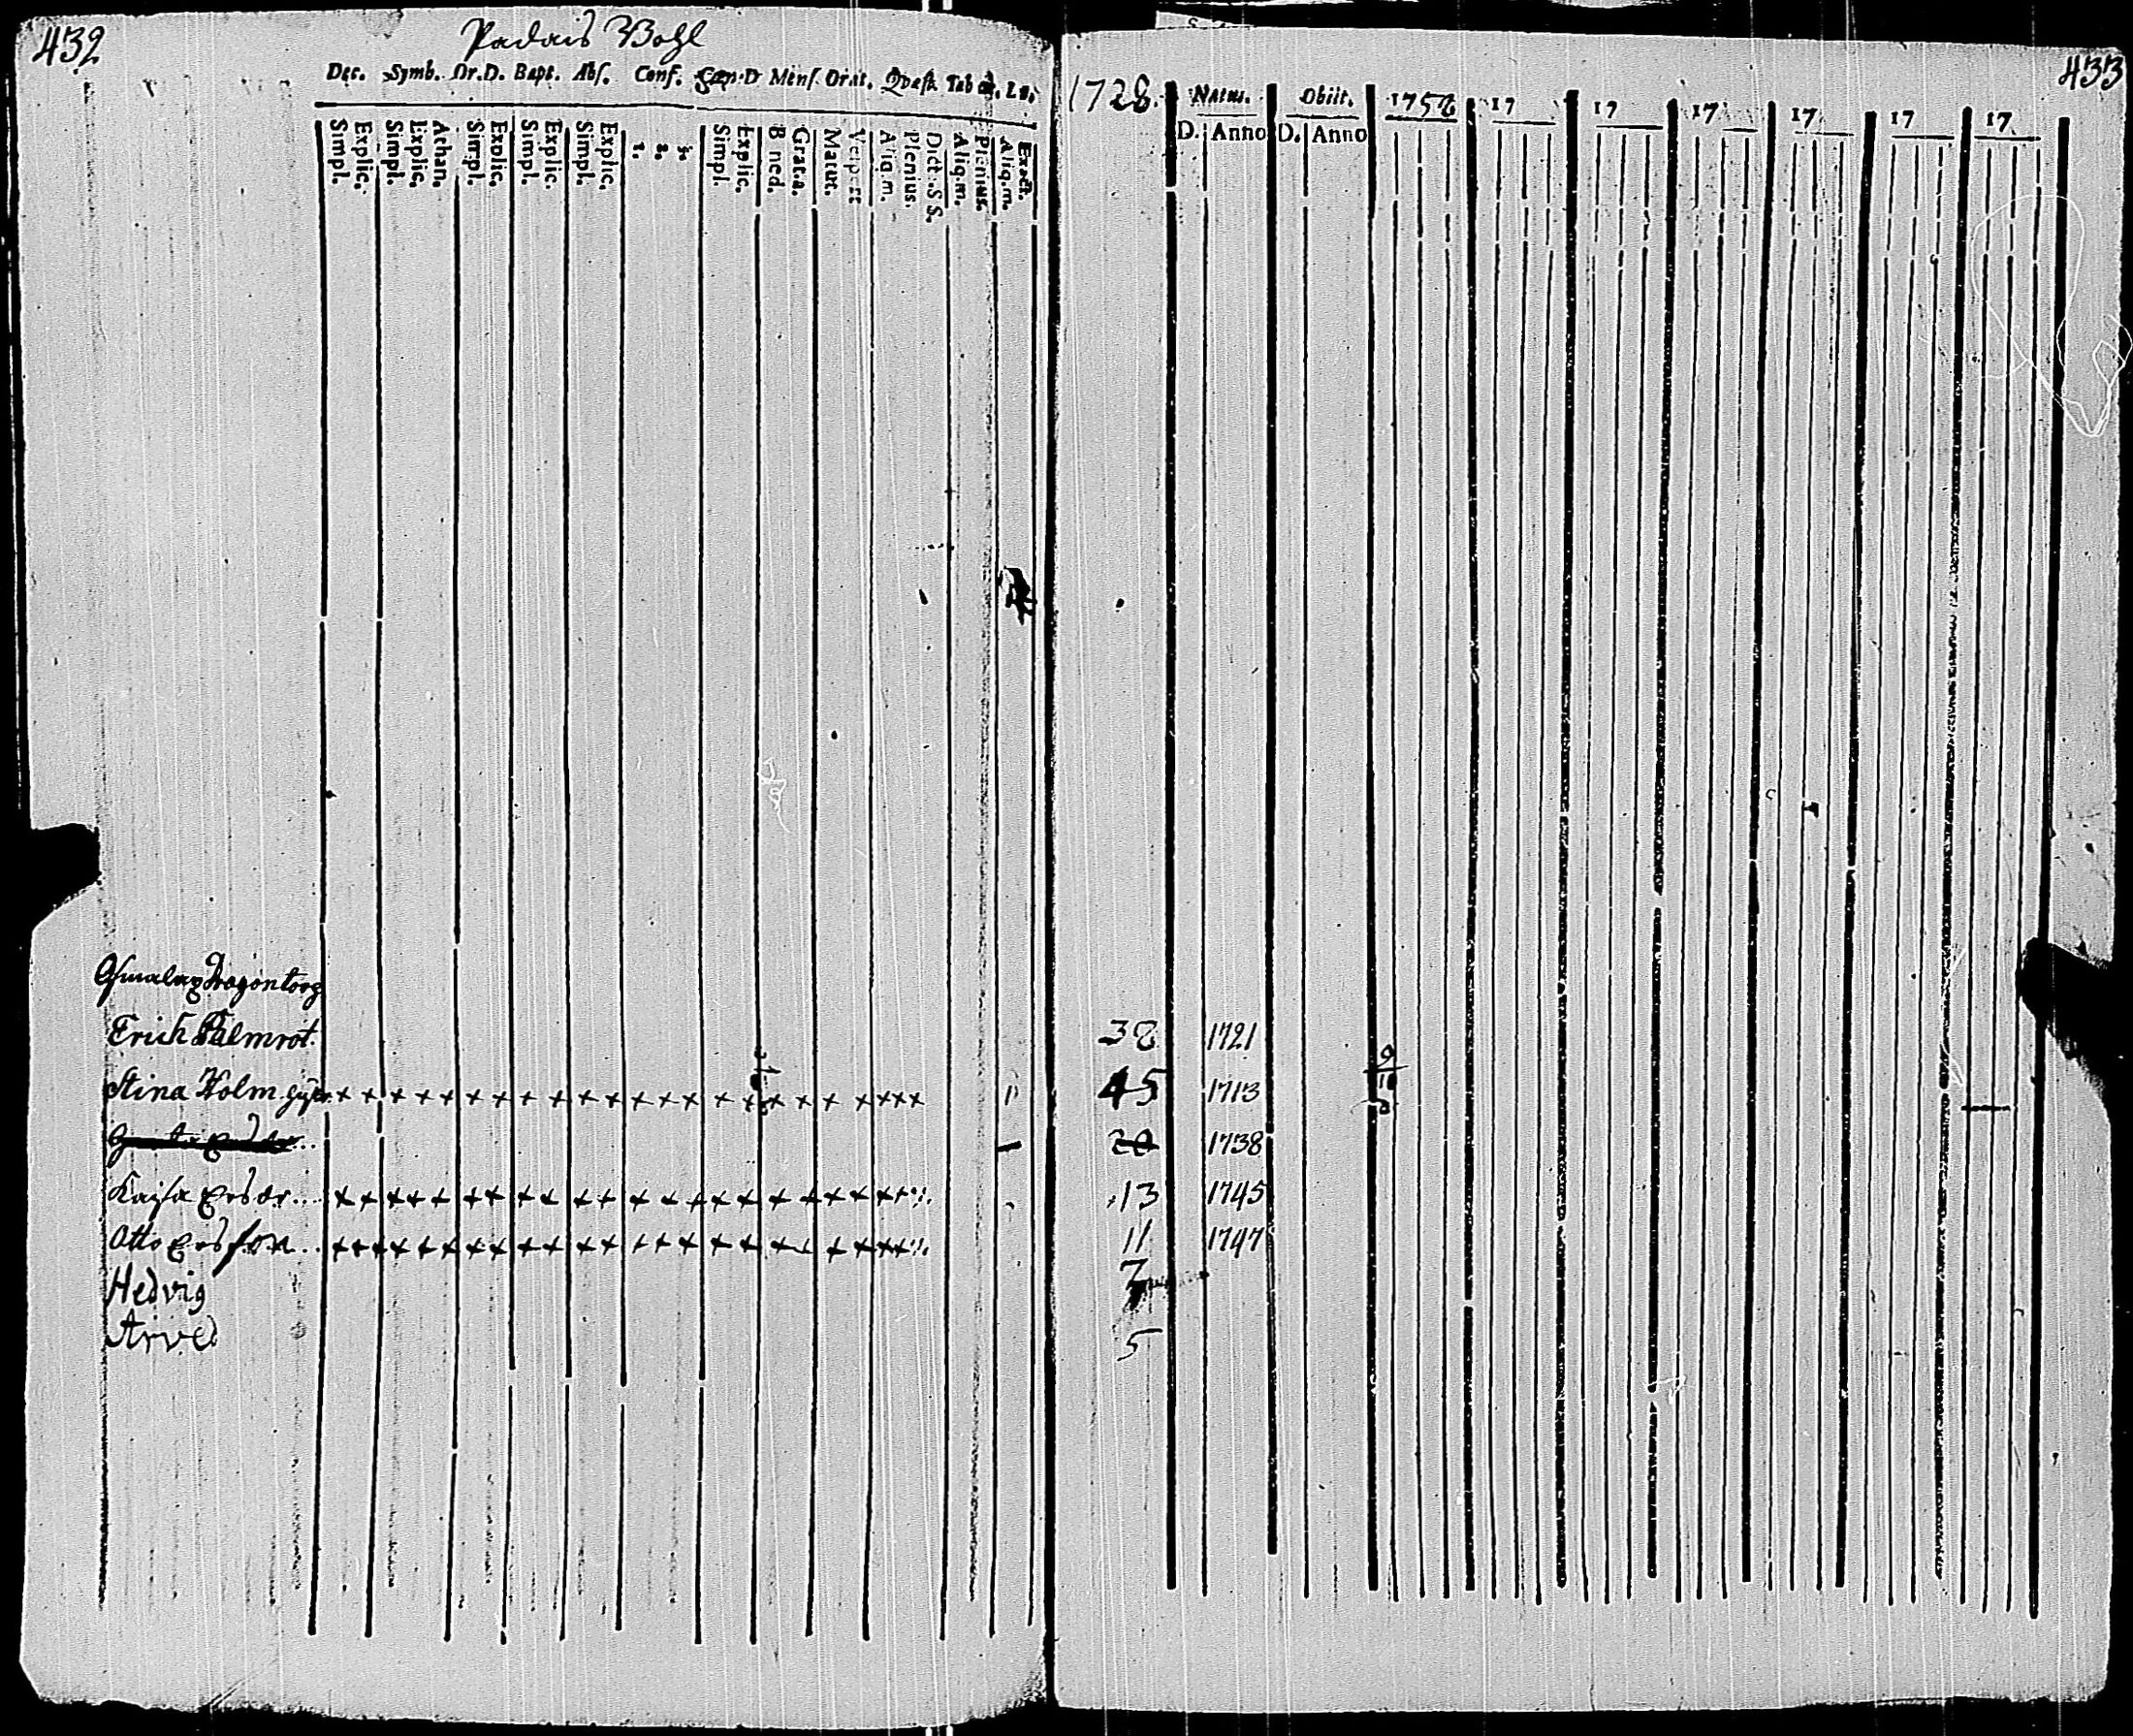 432
Padais Bohl
Dec. Symb. Or.D. Bapt. Abs. Conf. Cœn.D Mens. Orat. Qvæst. Tab œ.
Simpl. Explic. Simpl. Explic. Athan. Simpl. Explic. Simpl. Explic. Simpl. Explic. 1. 2. 3. Simpl. Explic. Bened. Grat.a. Matut. Vespert Aliq.m. Plenius. Dict. S S. Aliq.m. Plenius. Aliq.m. Exact.
Erich Palmrot.
Stina Holm + + + + + + + + + + + + + + + + + + + + + + +
Kajsa Ersdr... + + + + + + + + + + + + + + + + + + + + + +
Otto Ersson.. + + + + + + + + + + + + + + + + + + + + + +
Hedvig
Arved
433
1728. Natus. Obiit. 1758 17 17 17 17 17 17
D. Anno D. Anno
38 1721
45 1713
20 1738
13 1745
11 1747
7
5